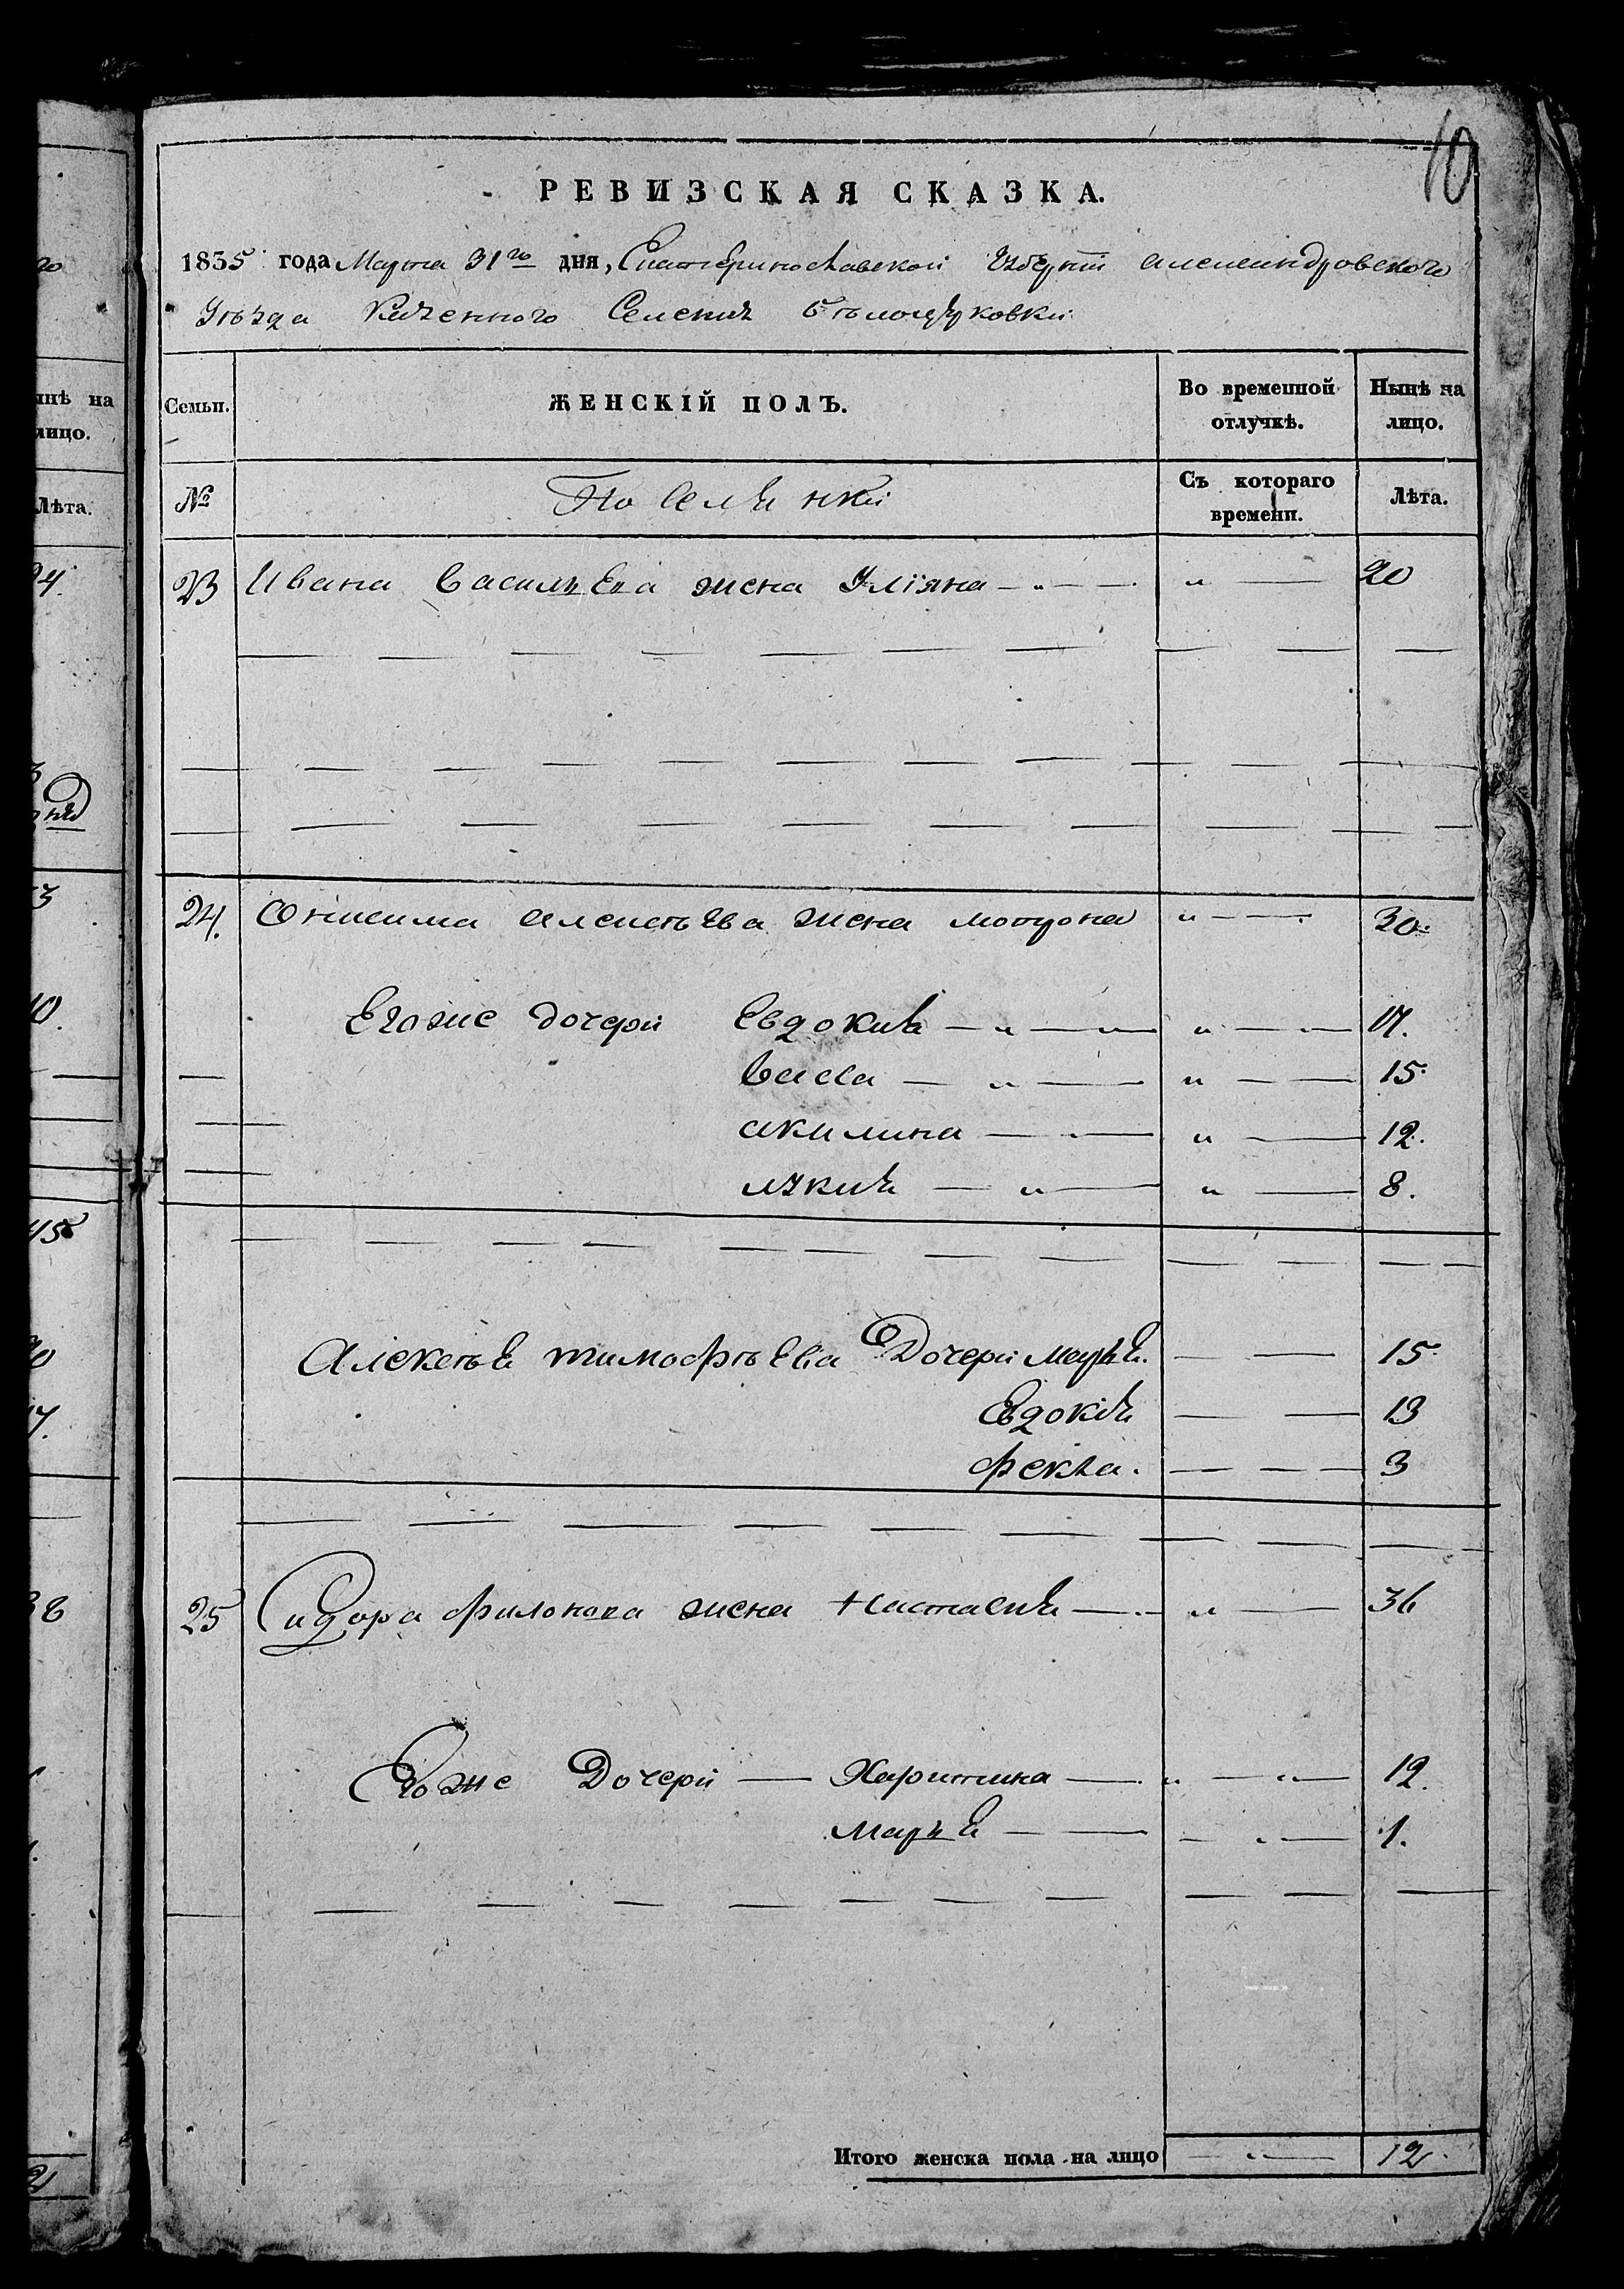 10
РЕВИЗСКАЯ СКАЗКА.
1835 года Марта 31го дня, Екатеринославской Губернии Александровского
Уѣзда Казенного Селения Бѣлоцерковки
Семьи. ЖЕНСКІЙ ПОЛЪ. Во временной отлучкѣ. Нынѣ на лицо.
№ Поселянки Съ котораго времени. Лѣта.
23 Ивана Васильева жена Улiяна — „ — „ — 20
24. Онисима Алексѣева жена Мотрона „ — 30.
Егоже дочери Евдокия — „ — „ — 17.
Васса — „ — „ — 15.
Акилина — „ — 12.
Лукия — „ — „ — 8.
Алексѣя Тимофѣева Дочери Марья. — 15.
Евдокiя — 13
Фекла. — 3
25 Сидора Филонова жена Настасия — „ — 36
Егоже Дочери — Харитина — „ — „ — 12.
Марья — „ — 1.
Итого женска пола на лицо — „ — 12.
нынѣ на
лицо.
Лѣта.